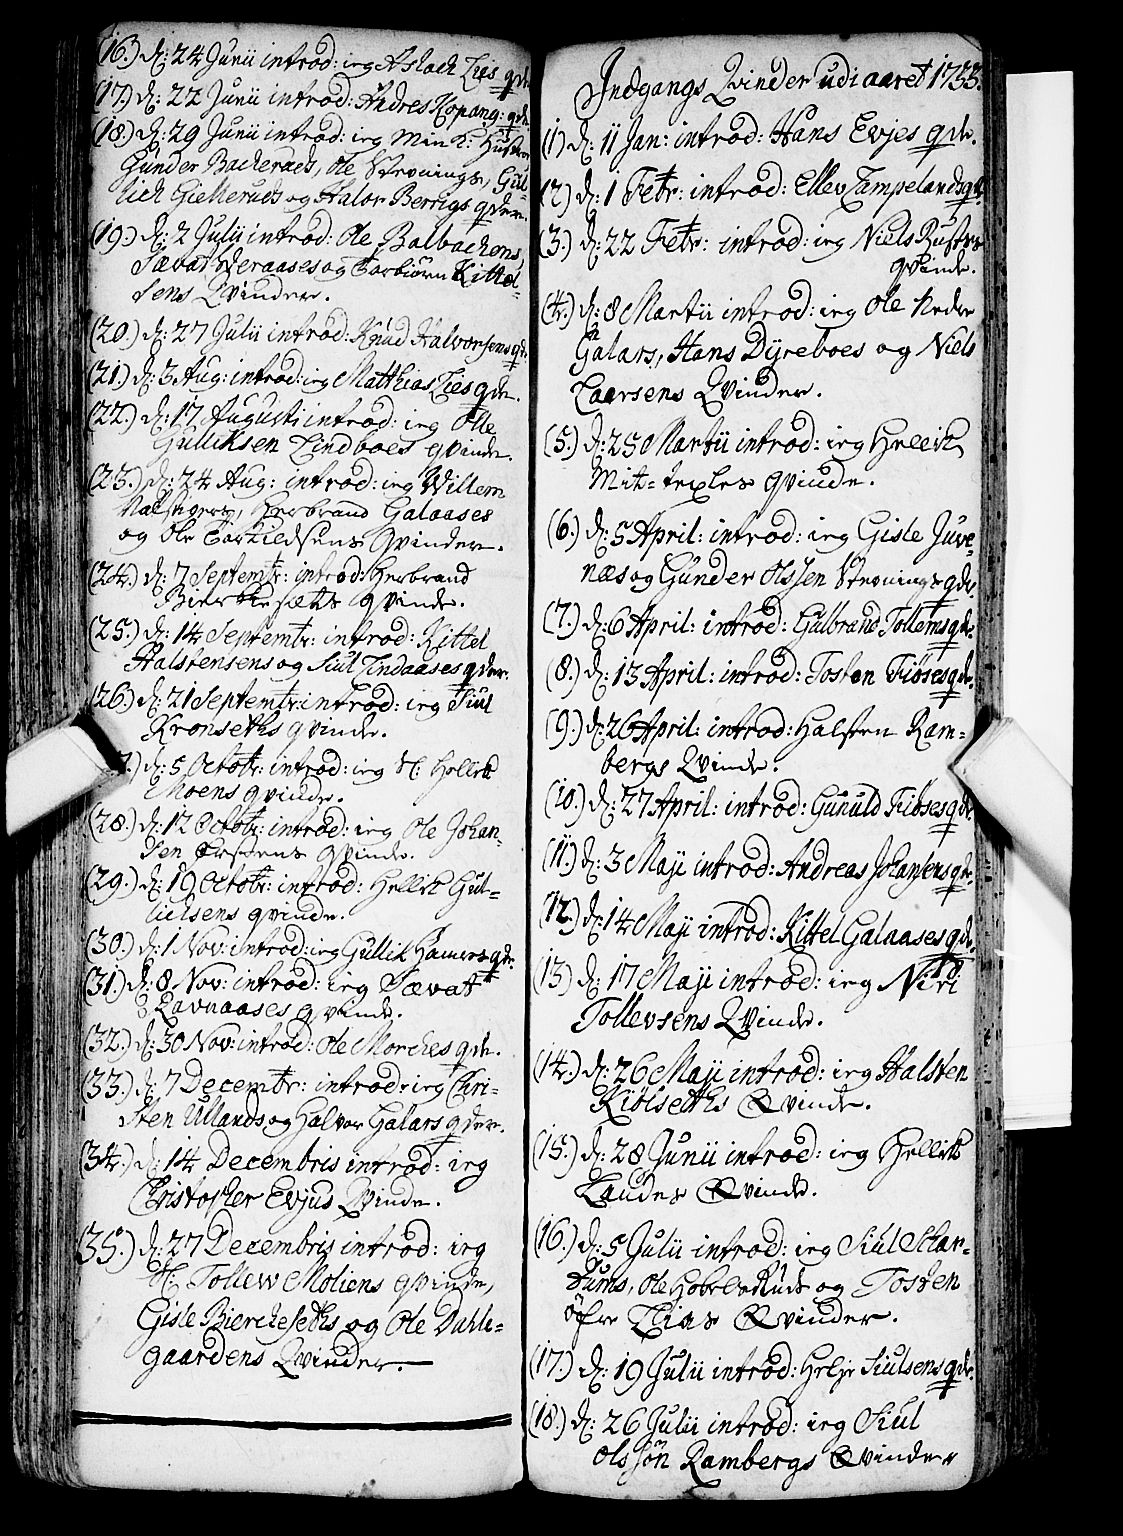 (16.) d: 24 Junii introd: ieg Aslack Lies qde.
(17.) d: 22 Junii introd: Andres Kopang: qde
(18.) d: 29 Junii introd: ieg Min K: Hustroe
Gunder Backeruds, Ole Stevnings, Gul-
lich Gielleruds og Halvor Berrigs qder.
(19.) d: 2 Julii introd: Ole Balbachens,
Sævat Veraases og Torbiørn Kittel-
sens Qvinder.
(20.) d: 27 Julii introd: Knud Halvorsens qd.
21.) d: 3 Aug: introd: ieg Matthias Lies qde.
(22.) d: 17 Augusti introd: ieg Olle
Gulliksen Lindboes qvinde.
(23.) d: 24 Aug: introd: ieg Willem
Herbrand Galaases
og Ole Torkildsens Qvinder.
(24.) d: 7 Septembr: introd: Herbrand
Bierkesæts qvinde.
(25.) d: 14 Septembr: introd: Kittel
Halstensens og Siul Lindaases qder.
(26.) d: 21 Septembr: introd: ieg Siul
Kronseths qvinde.
7.) d: 5 Octobr: introd: ieg H: Hellik
Moens qvinde.
(28.) d: 12 Octobr: introd: ieg Ole Johan-
sen qvinde.
(29.) d: 19 Octobr: introd: Hellik Gul-
lielsens qvinde.
(30.) d: 1 Nov: introd: ieg Gullik Hamers qde.
31.) d: 8 Nov: introd: ieg Sævat
Ravnaases qvinde.
(32.) d: 30 Nov: introd: Ole Morches qde.
(33.) d: 7 Decembr: introd: ieg Chri-
sten Ullands og Halvor Galars qder.
(34.) d: 14 Decembris introd: ieg
Christopher Evjus Qvinde.
(35.) d: 27 Decembris introd: ieg
H: Tollew Moliens qvinde,
Gisle Biercheseths og Ole Dahle-
gaardens Qvinder.
Indgangs Qvinder udi aaret 1733.
(1) d: 11 Jan: introd: Hans Evjes qde.
(2) d: 1 Febr: introd: Ellev Tampelands qd.
(3.) d: 22 Febr: introd: ieg Niels Rustes
qvinde.
(4.) d: 8 Martii introd: ieg Ole Nedre
Galars, Hans Dyreboes og Niels
Laarsens Qvinder.
(5.) d: 25 Martii introd: ieg Hellik
Mit-texles qvinde.
(6.) d: 5 April: introd: ieg Gisle Juve-
næs og Gunder Olssen Stevnings qde.
(7.) d: 6 April: introd: Gulbrand Tollems qde.
(8.) d: 13 April: introd: Tosten Fiøses qde.
(9.) d: 26 April: introd: Halsten Ram-
bergs Qvinde.
(10.) d: 27 April: introd: Gunuld Fiøses qde.
(11.) d: 3 Maji introd: Andreas Johansens qde.
(12.) d: 14 Maji introd: Kittel Galaases qde.
(13) d: 17 Maji introd: ieg Niri
Tollevsens Qvinde.
(14.) d: 26 Maji introd: ieg Halsten
Kiølseths Qvinde.
(15.) d: 28 Junii introd: ieg Hellik
Landes Qvinde.
(16.) d: 5 Julii introd: ieg Siul Skar-
tums, Ole Hobberstads og Tosten
øfre Lias Qvinder.
(17.) d: 19 Julii introd: Helje Siulsens qde.
(18.) d: 26 Julii introd: ieg Siul
Olssøn Rambergs Qvinder